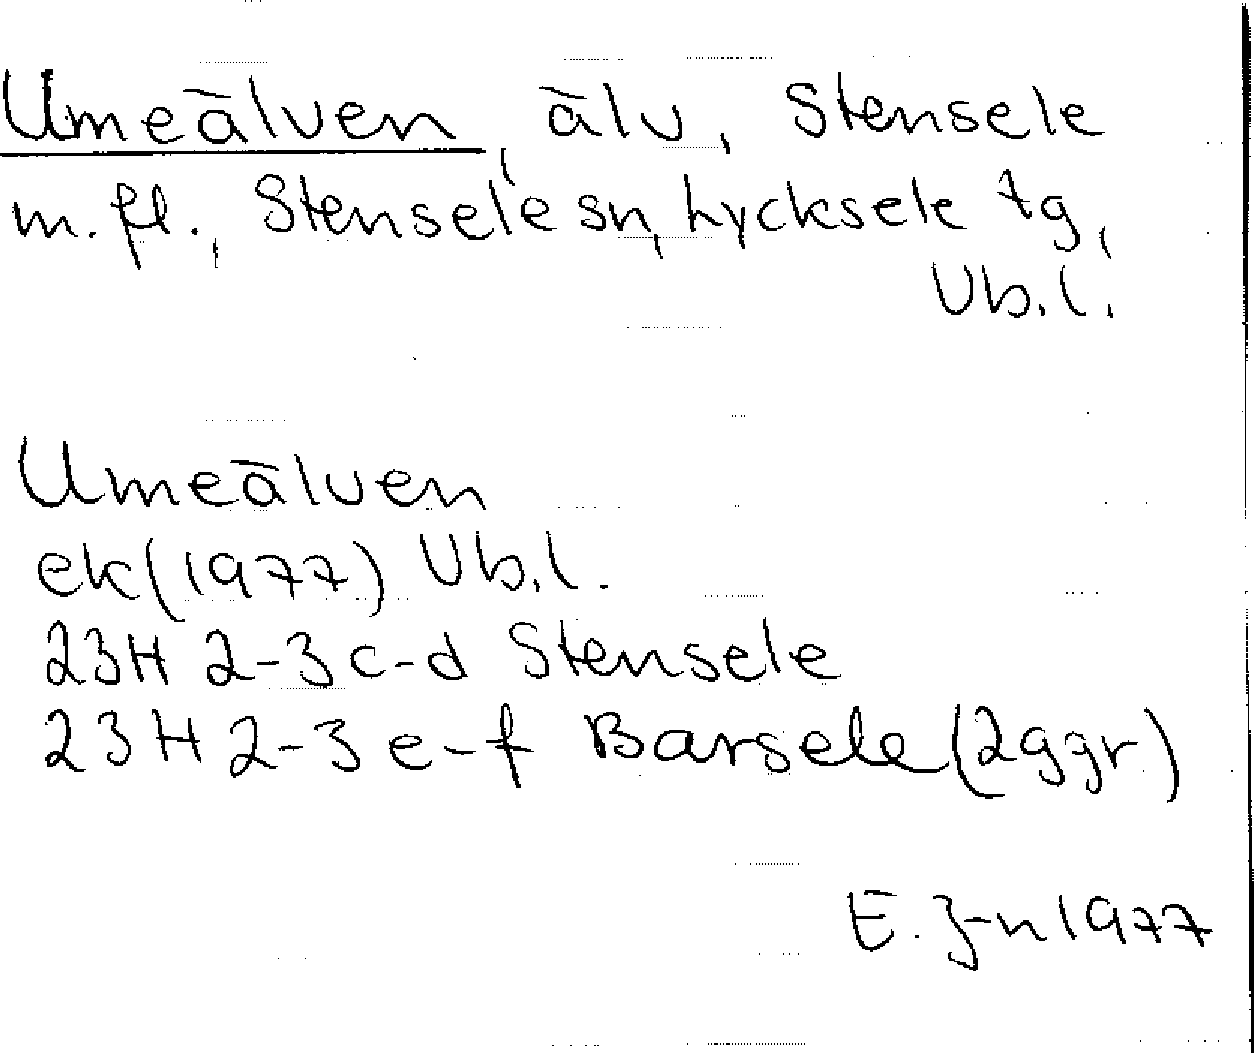 Umeälven, älv, Stensele
m. fl., Stensele sn, Lycksele tg,
Vb. l.
Umeälven
ek (1977) Vb. l.
23H 2-3 c-d Stensele
23H 2-3 e-f Barsele (2 ggr)
E. J-n 1977